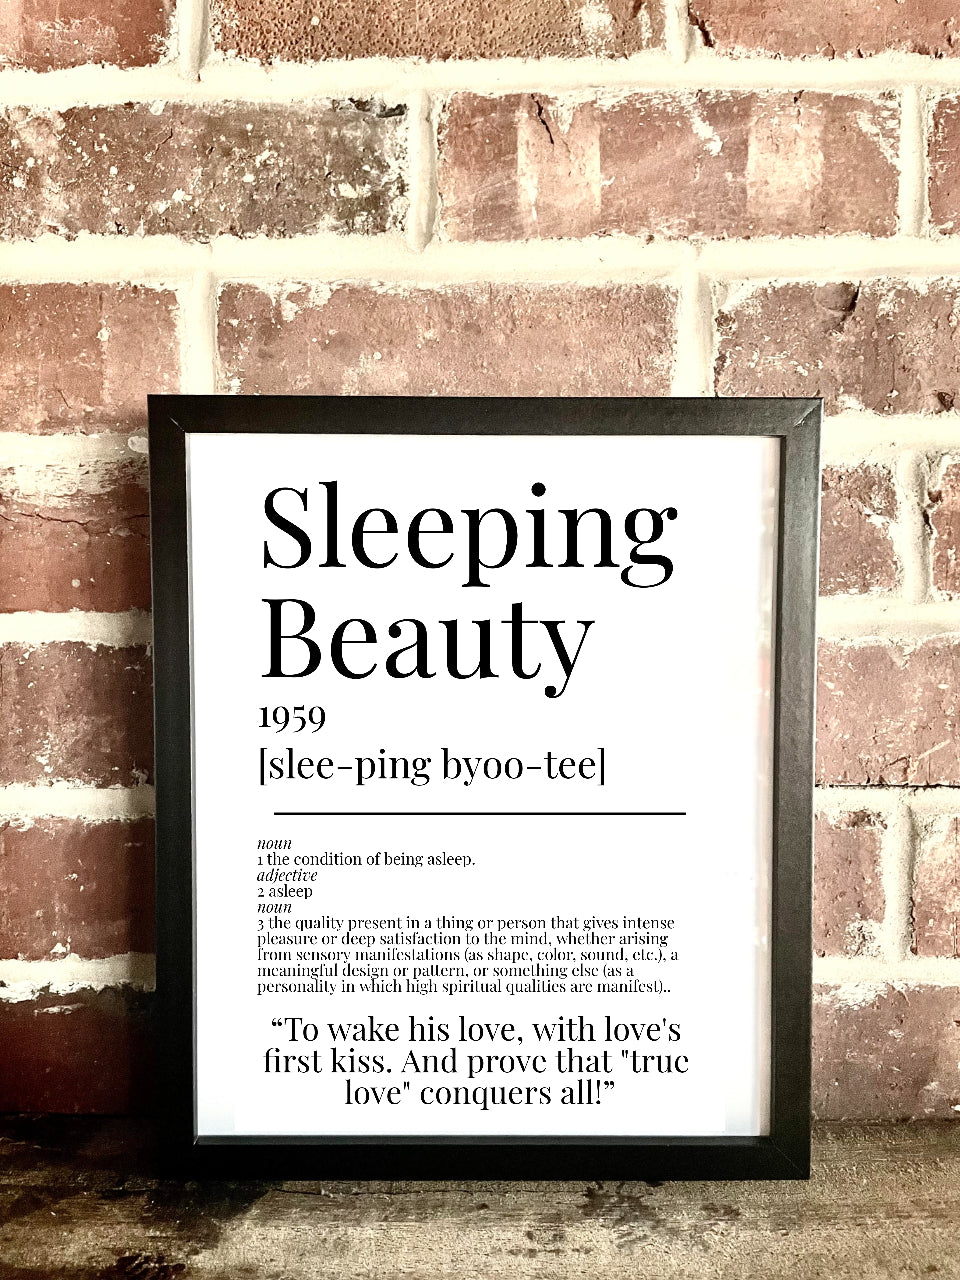 Sleeping
Beauty
1959
[slee-ping byoo-tee]
noun
1 the condition of being asleep.
adjective
2 asleep
noun
3 the quality present in a thing or person that gives intense
pleasure or deep satisfaction to the mind, whether arising
from sensory manifestations (as shape, color, sound, etc.), a
meaningful design or pattern, or something else (as a
personality in which high spiritual qualities are manifest)..
“To wake his love, with love's
first kiss. And prove that "true
love" conquers all!”